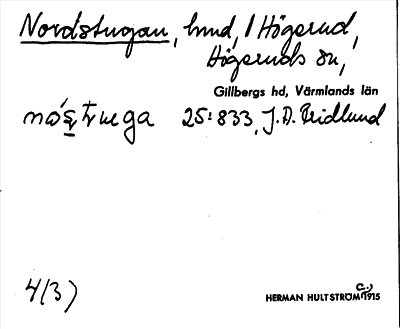 Nordstugan, hmd, i Högerud,
Högeruds sn,
Gillbergs hd, Värmlands län
25:833, J.A. Bridlund
4(3)
HERMAN HULTSTRÖM c:a 1915